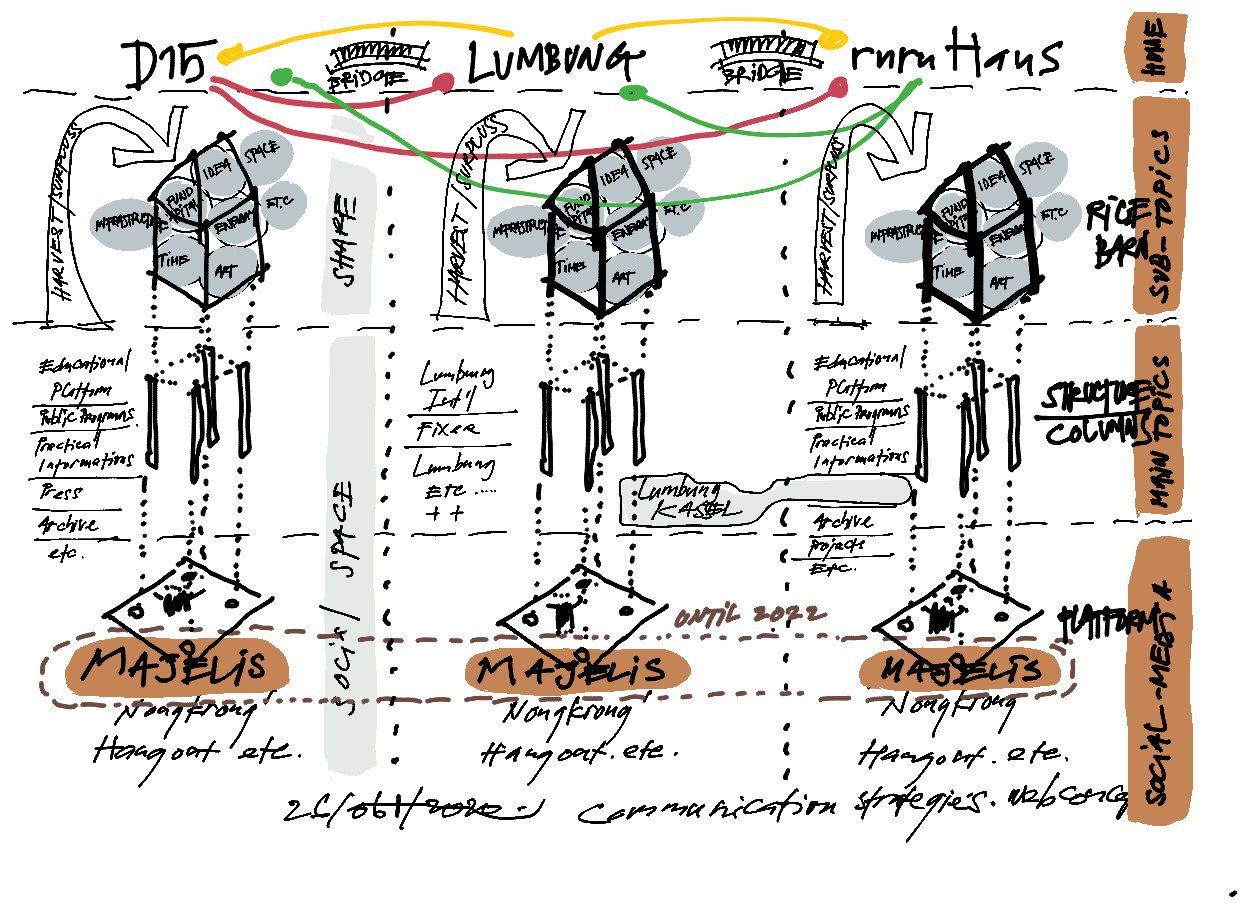 D15
BRIDGE
LUMBUNG
BRIDGE
ruruHaus
HOME
HARVEST/SURPLUSS
SPACE
IDEA
ETC
INFRASTRUC
ENERGY
TIME
ART
SHARE
HARVEST/SURPLUSS
SPACE
IDEA
ETC
INFRASTRUC
ENERGY
TIME
ART
HARVEST/SURPLUSS
SPACE
IDEA
ETC
INFRASTRUC
ENERGY
TIME
ART
RICE
BARN
SUB-TOPICS
Educational
Platform
Public Programs
Practical
Informations
Press
Archive
etc.
Lumbung
Int'l
Fixer
Lumbung
Etc ....
+ +
Lumbung
KASSEL
Educational
Platform
Public Programs
Practical
Informations
Archive
Projects
Etc.
STRUCTURE
COLUMNS
MAIN TOPICS
SOCIAL/ SPACE
UNTIL 2022
PLATFORM
MAJELIS
MAJELIS
MAJELIS
Nongkrong
Hangout etc.
Nongkrong
Hangout. etc.
Nongkrong
Hangout. etc.
communication strategies.